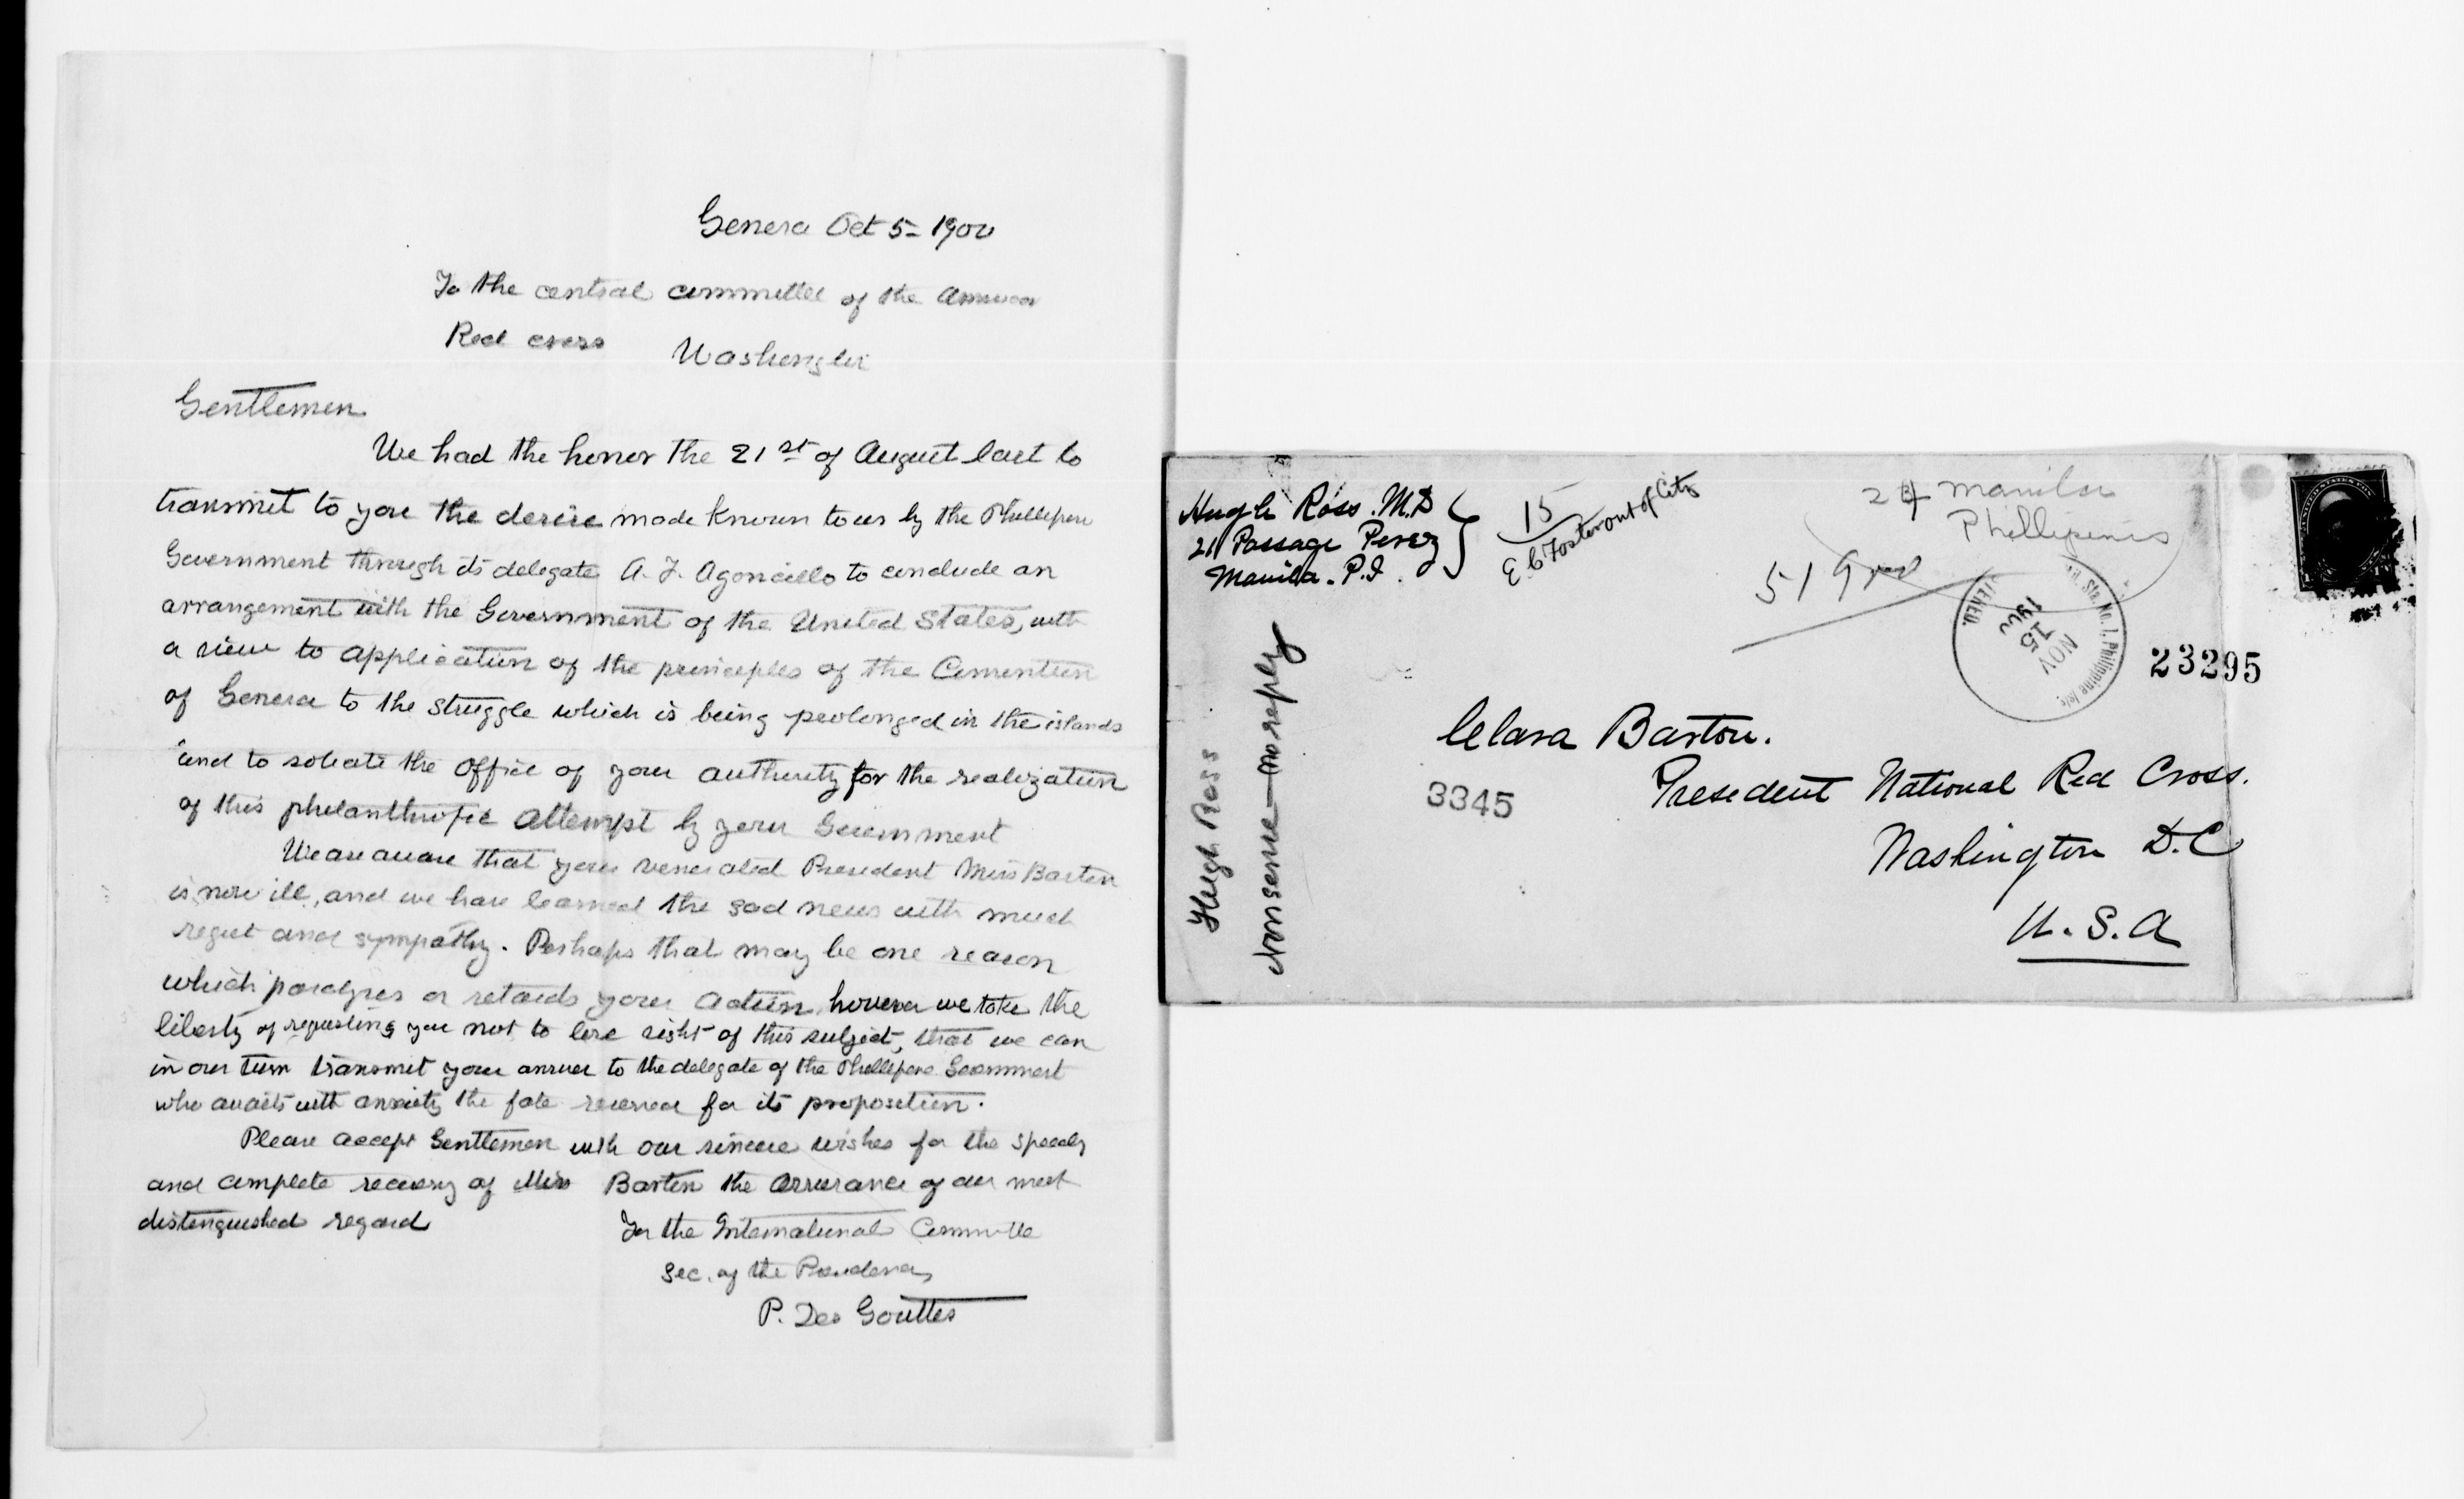 Geneva Oct 5 = 1900
To the central committee of the American
Red cross
Washington
Gentlemen
We had the honor the 21st of August last to
transmit to you the desire made known to us by the Phillipine
Government through its delegate A. J. Agoncillo to conclude an
arrangement with the Government of the United States, with
a view to application of the principles of the Convention
of Geneva to the struggle which is being prolonged in the islands
and to solicate the office of your authority for the realization
of this philanthropic attempt by your Government
We are aware that your venerated President Miss Barton
is now ill, and we have learned the sad news with much
regret and sympathy. Perhaps that may be one reason
which paralyzes or retards your action, however we take the
liberty of requesting you not to lose sight of this subject, that we can
in our turn transmit your answer to the delegate of the Phillipine Government
who awaits with anxiety the fate reserved for its proposition.
Please accept Gentlemen with our sincere wishes for the speedy
and complete recovery of Miss Barton the assurance of our most
distinguished regard
For the International Committe
Sec. of the
P. Des Gouttes
Hugh Ross. M.D
21 Passage Perez
Manila. P.I.
15
E. C. Foster out of City
24 Manila
Phillipines
51 9
Sta. No. 1, Philippine Isls.
NOV
15
1900
23295
Clara Barton.
3345
President National Red Cross.
Washington D.C
U.S.A
Hugh Ross
Nonsense — no reply